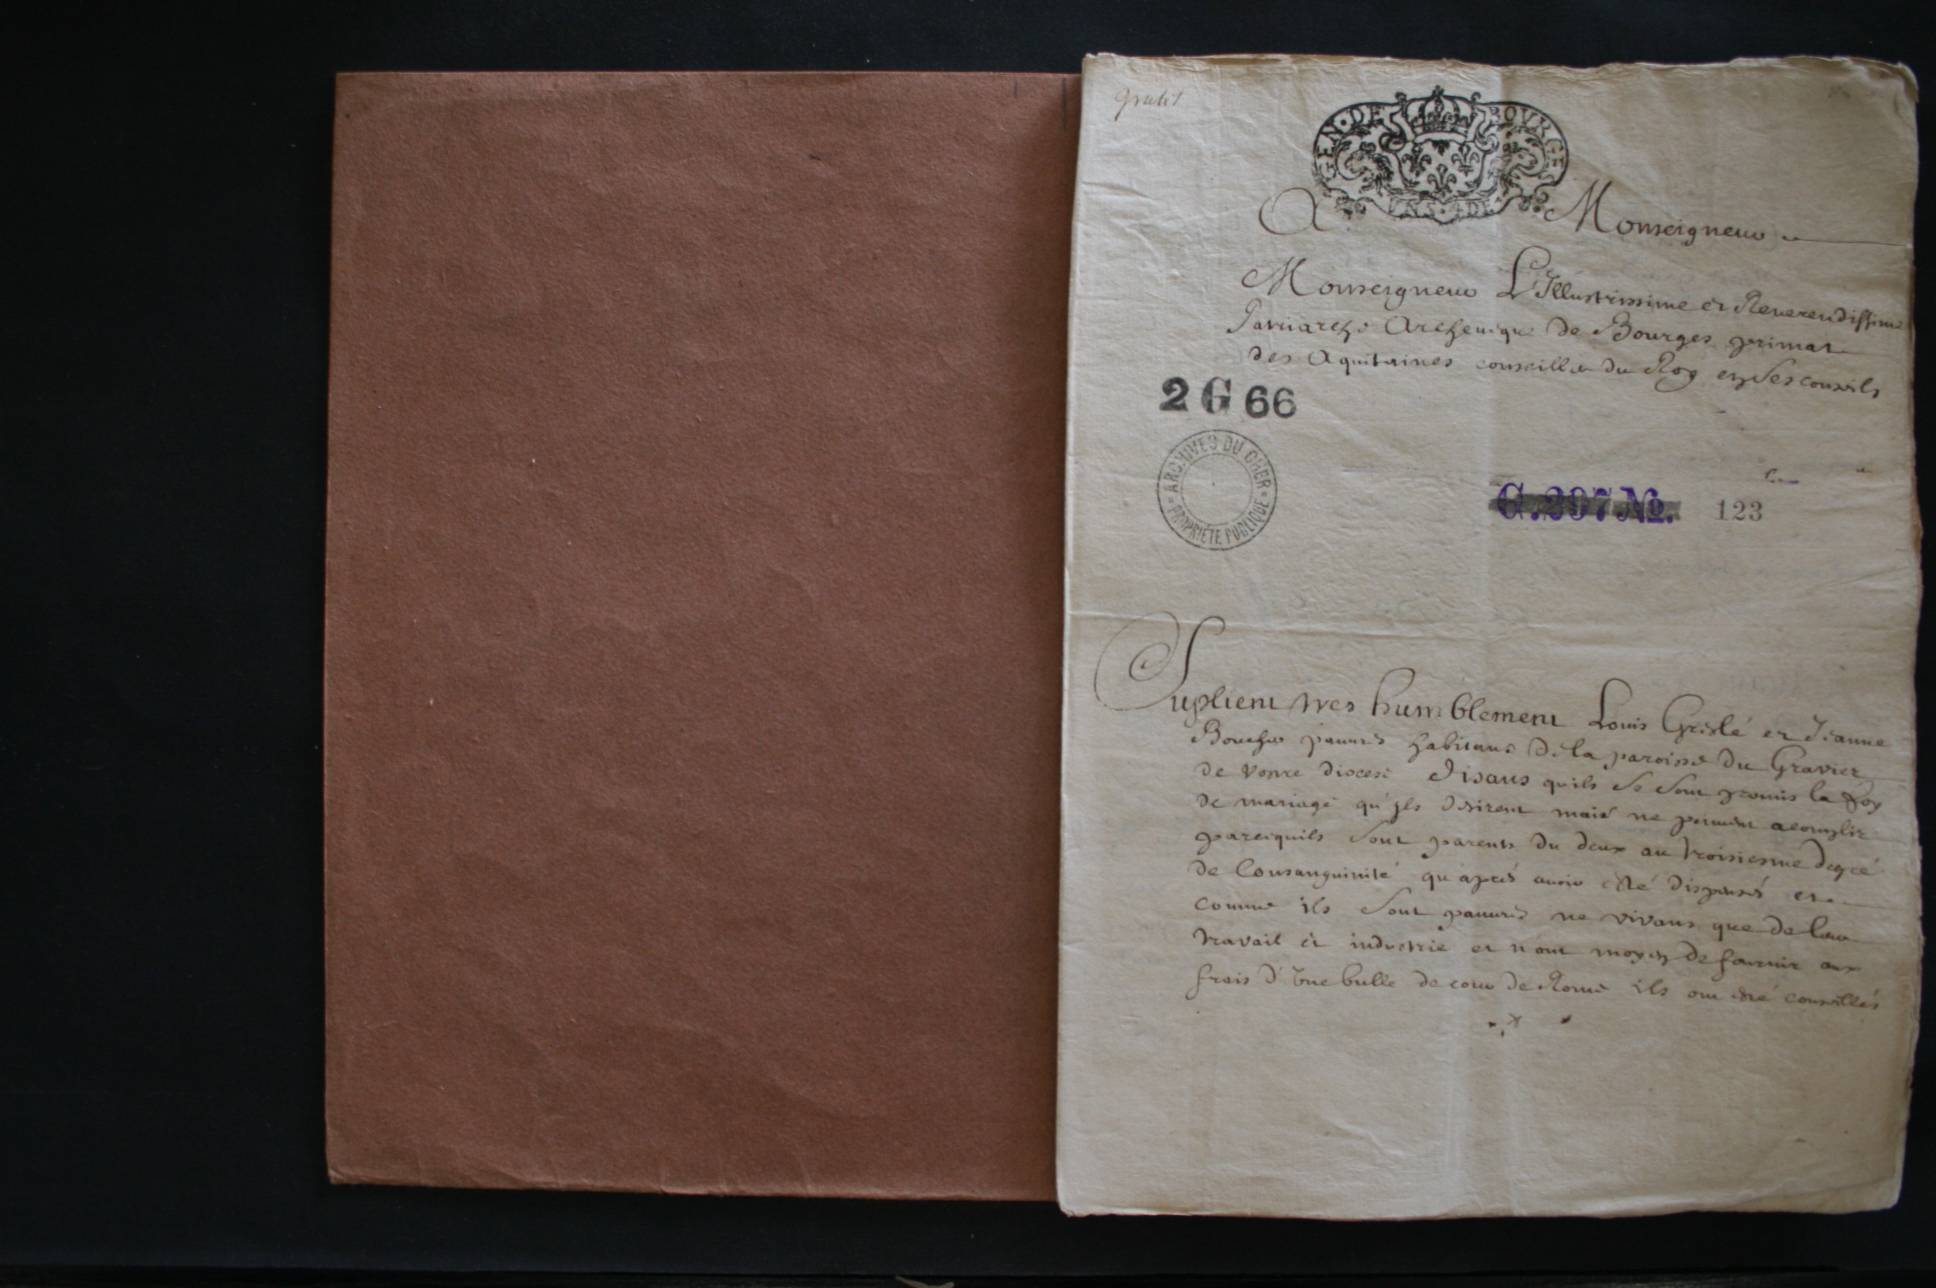 gratis
GEN·DE BOVRGE
VN S. 4 DE
A Monseigneur
Monseigneur L'Illustrissime et Reverendissime
Patriarche Archeuêque de Bourges primat
des Aquitaines conseiller du Roy en ses conseils
2 G 66
ARCHIVES DU CHER
PROPRIÉTÉ PUBLIQUE
G. 397 No. 123
Suplient tres humblement Louis Greslé et Jeanne
Boucher pauures habitans de la paroisse du Gravier
de votre diocese disans quils se sont promis la foy
de mariage qu'jls desirent mais ne peuuent acomplir
parcequils sont parents du deux au troisiesme degré
de Consanguinité qu'aprés auoir esté dispensés et
comme ils sont pauures ne vivans que de leur
travail et industrie et n'ont moyen de fournir aux
frais d'une bulle de cour de Rome ils ont esté conseillés